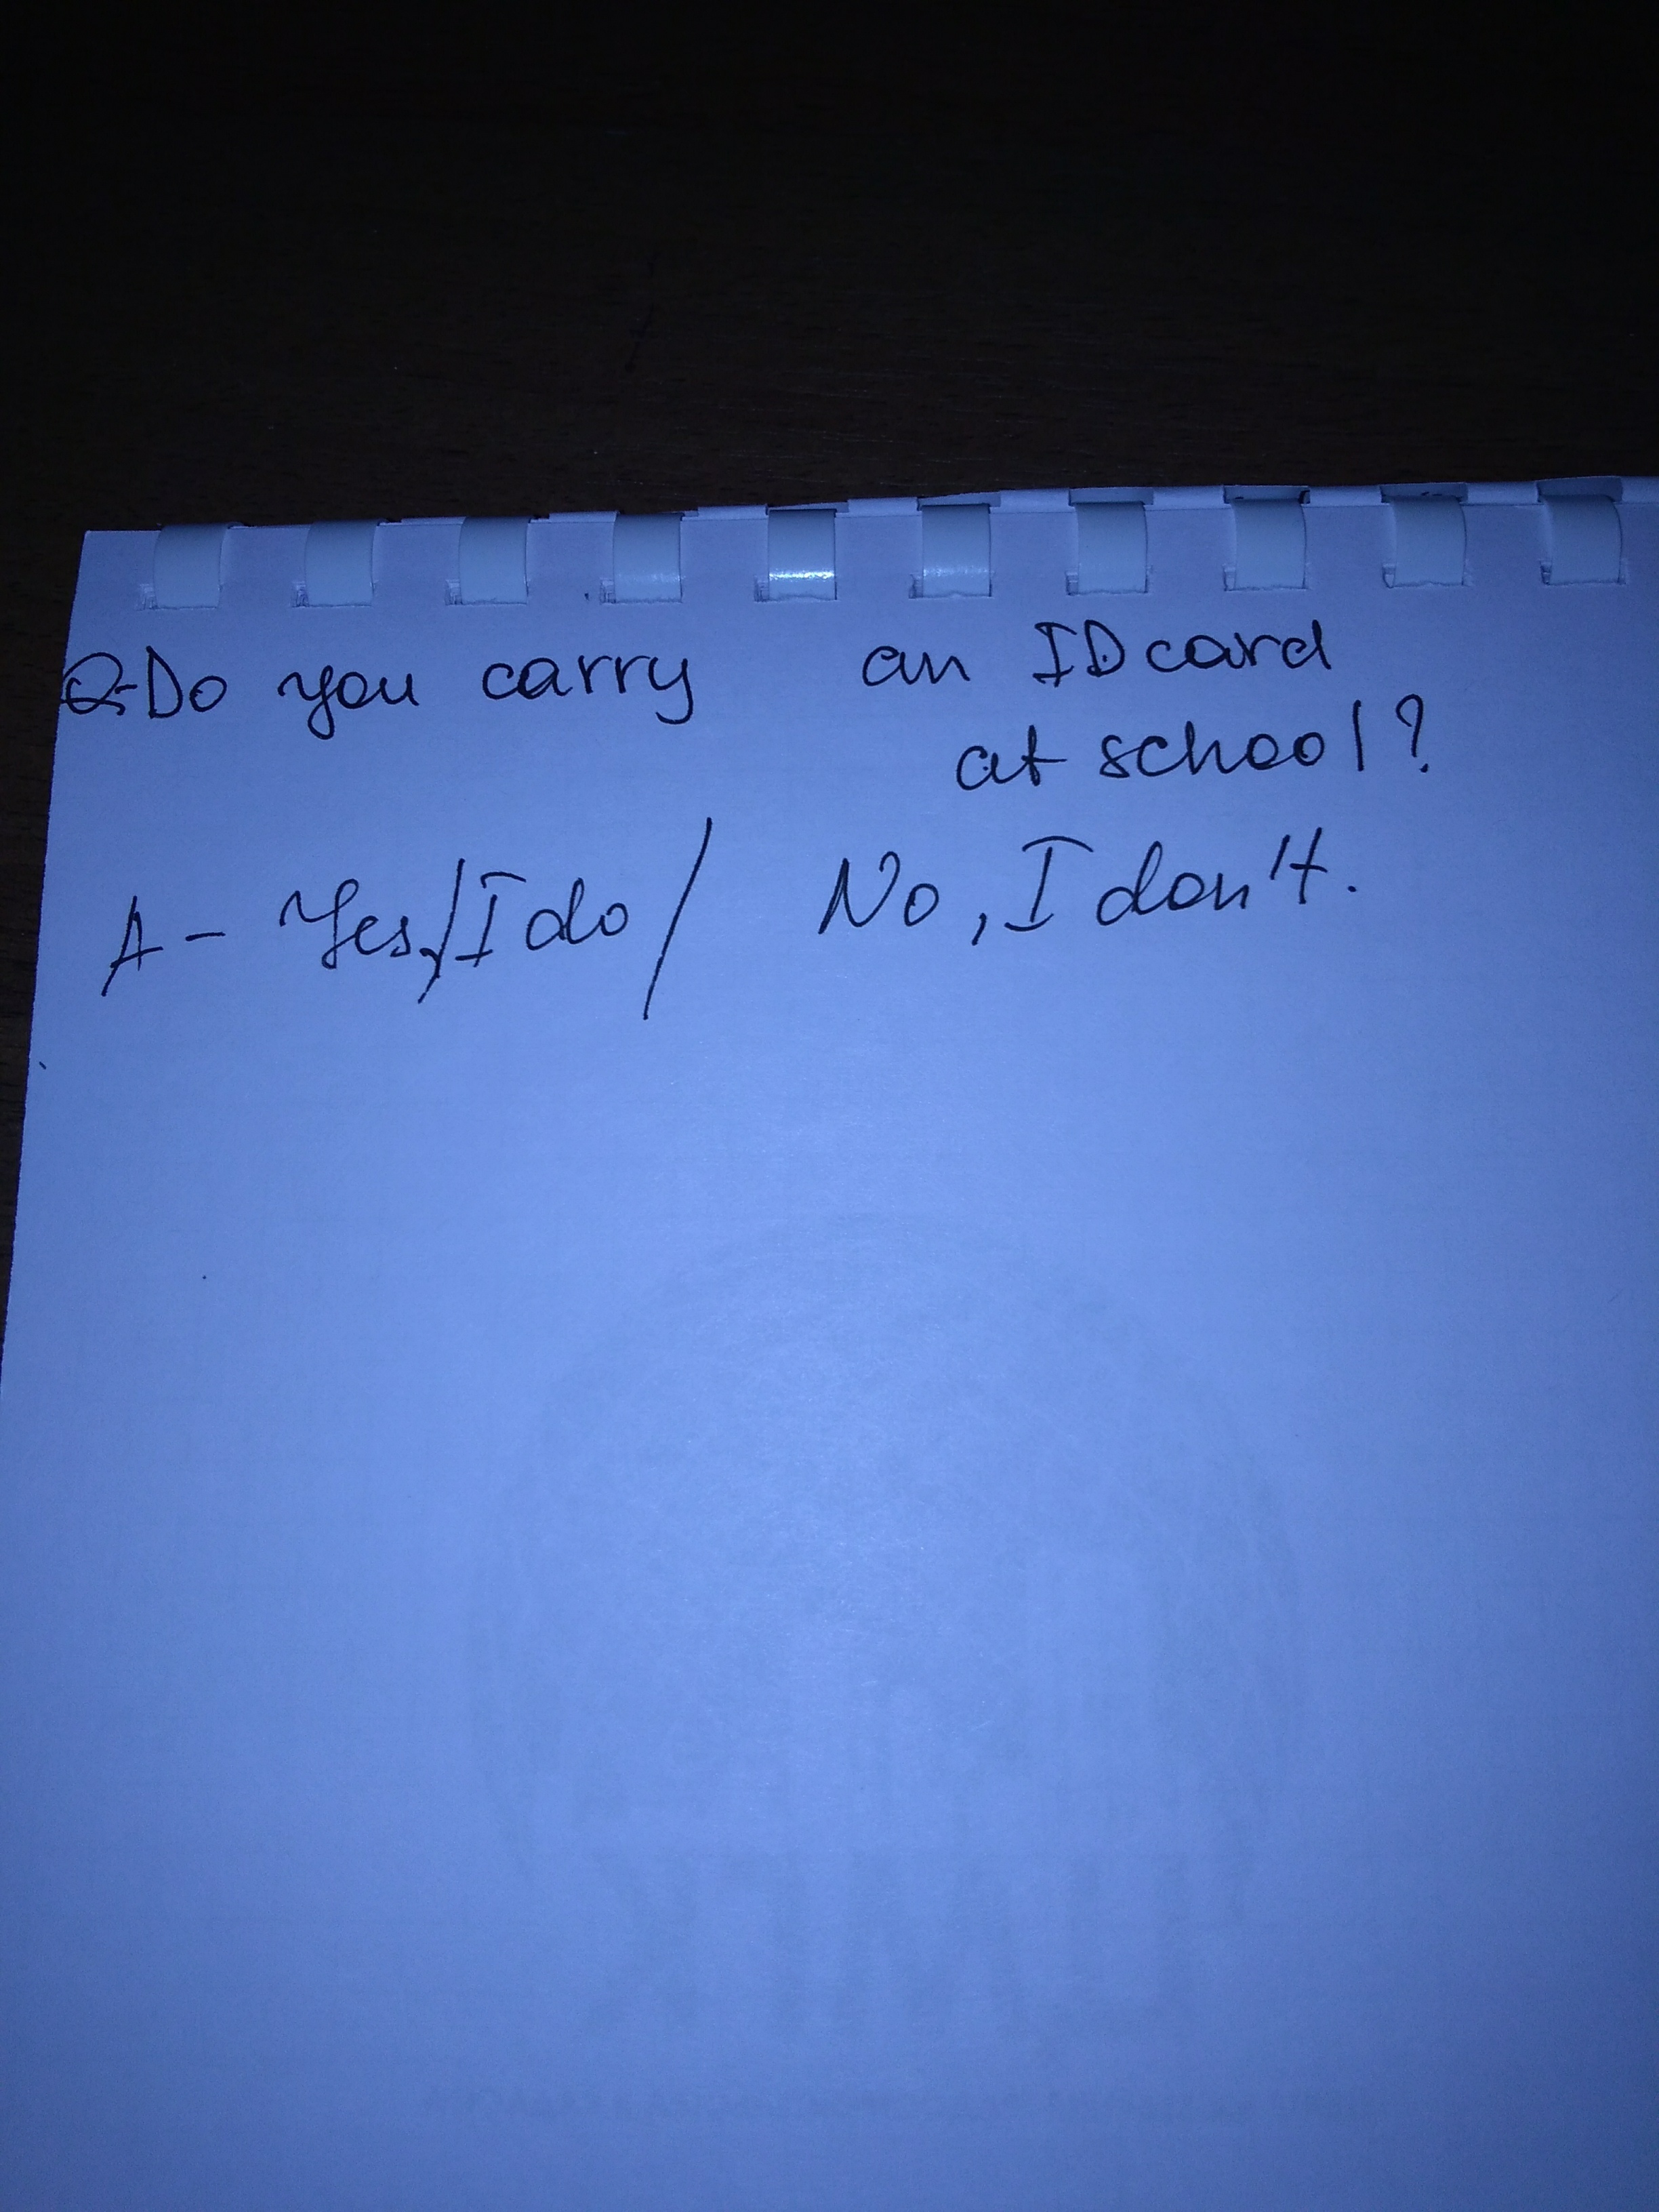 Q-Do you carry an ID card
at school?
A- Yes,/I do/ No, I don't.